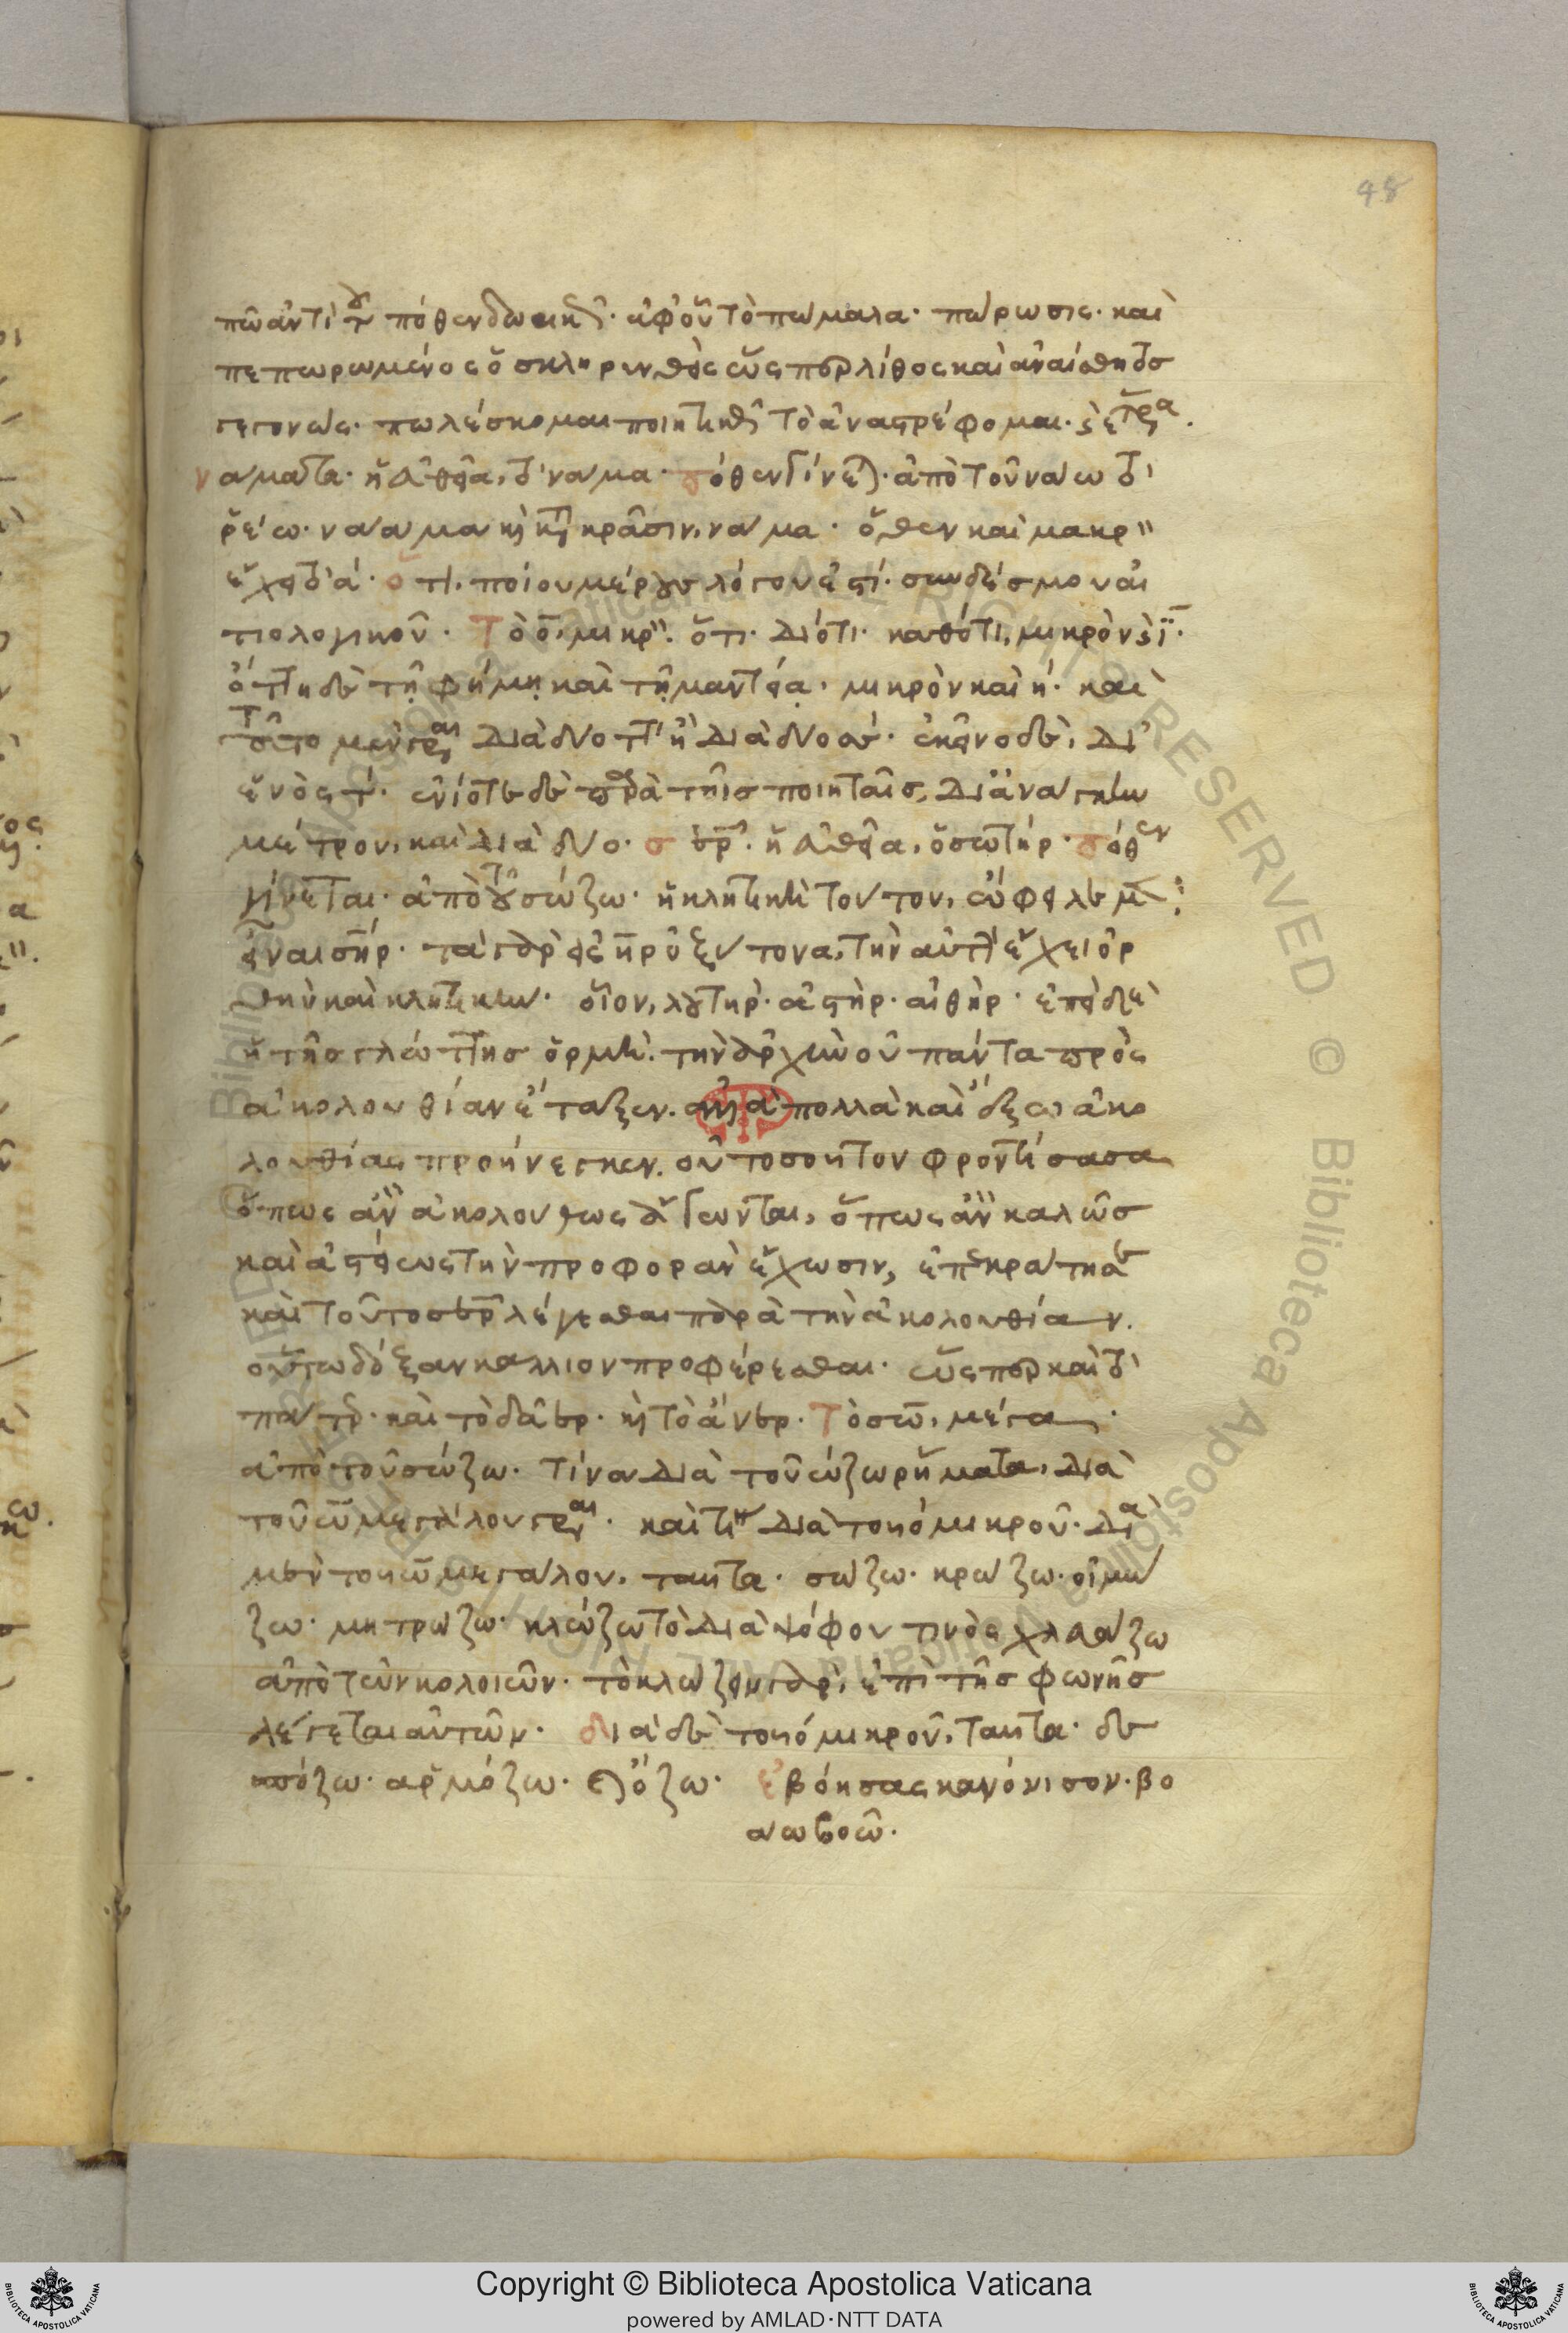 48
πῶ ἀντὶ τοῦ πόθεν δωρικῶς· ἀφ' οὗ τὸ πώμαλα· πώρωσις· καὶ
πεπωρωμένος ὁ σκληρυνθεὶς ὥσπερ λίθος καὶ ἀναίσθητος
γεγονώς· πωλέσκομαι ποιητικῶς τὸ ἀναστρέφομαι· καὶ ἕτερα.
νάματα· ἡ εὐθεῖα, τὸ νάμα· πόθεν γίνεται· ἀπὸ τοῦ νάω τὸ
ῥέω· νάαμα καὶ κατὰ κρᾶσιν, νάμα· ὅθεν καὶ μακρὸν
ἔχει τὸ α· ὅτι, ποίου μέρους λόγου ἐστί· συνδέσμου αἰ
τιολογικοῦ· Τὸ ο, μικρόν· ὅτι· διότι· καθότι, μικρὸν καὶ ι·
ὅττη δὲ τῆ φήμη καὶ τῆ μαντεία, μικρὸν καὶ η· καὶ
τοῦτο μὲν γράφεται διὰ δύο ττ ἢ διὰ δύο σσ· ἐκεῖνο δὲ, δι'
ἑνὸς τ· ἐνίοτε δὲ παρὰ τοῖς ποιηταῖς, διὰ ἀνάγκην
μέτρου, καὶ διὰ δύο· σῶτερ· ἡ εὐθεῖα, ὁ σωτήρ· πόθεν
γίνεται· ἀπὸ τοῦ σώζω· ἡ κλητικὴ τούτου, ὤφειλε μὲν
εἶναι σωτήρ· τὰ γὰρ εἰς ηρ ὀξύτονα, τὴν αὐτὴν ἔχει ὀρ
θὴν καὶ κλητικήν· οἷον, λουτήρ· ἀστήρ· αἰθήρ· ἐπειδὴ
ἡ τῆς γλώττης ὁρμὴ· τὴν ἀρχὴν οὐ πάντα πρὸς
ἀκολουθίαν ἔταξεν. ἀλλὰ πολλὰ καὶ ἔξω ἀκο
λουθίας προήνεγκεν. οὐ τοσοῦτον φροντίσασα
ὅπως ἂν ἀκολούθως λέγωνται, ὅπως ἂν καλῶς
καὶ ἀστείως τὴν προφορὰν ἔχωσιν, ἐπεκράτησε
καὶ τοῦτο σῶτερ λέγεσθαι παρὰ τὴν ἀκολουθίαν.
οὕτω δόξαν κάλλιον προφέρεσθαι· ὥσπερ καὶ τὸ
πάτερ· καὶ τὸ δᾶερ· καὶ τὸ ἄνερ· Τὸ σω, μέγα·
ἀπὸ τοῦ σώζω· τίνα διὰ τοῦ ώζω ῥήματα, διὰ
τοῦ ω μεγάλου γράφεται· καὶ τίνα διὰ τοῦ ο μικροῦ· διὰ
μὲν τοῦ ω μεγάλου, ταῦτα· σώζω· κρώζω· οἰμώ
ζω· μητρώζω· κλώζω τὸ διὰ ψόφου τινὸς χλευάζω
ἀπὸ τῶν κολοιῶν· τὸ κλώζειν γὰρ, ἐπὶ τῆς φωνῆς
λέγεται αὐτῶν· διὰ δὲ τοῦ ο μικροῦ, ταῦτα· δε
σπόζω· ἁρμόζω· ὄζω· ἐβόησας κανόνισον· βο
άω βοῶ·
Copyright © Biblioteca Apostolica Vaticana
powered by AMLAD·NTT DATA